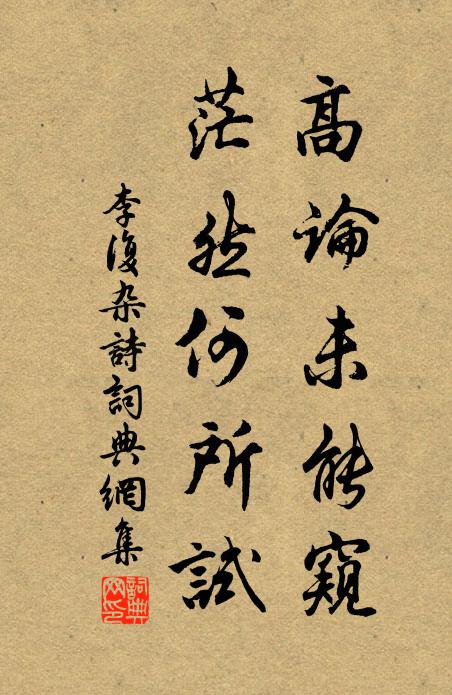 高論未能窺
茫然何所試
李復杂詩詞典網集
詞典
网印